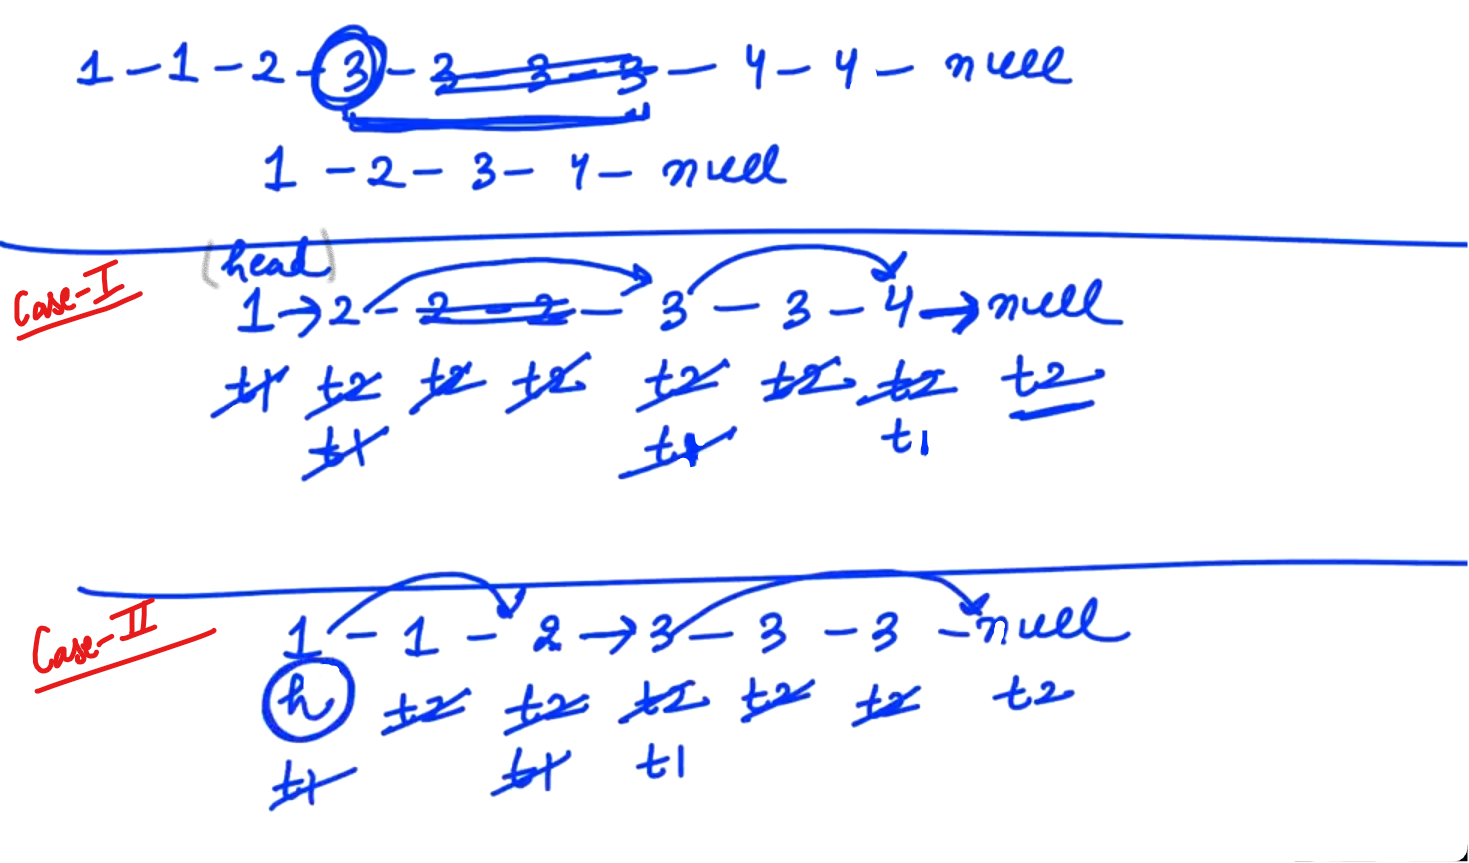 1 - 1 - 2 - 3 - 3 - 3 - 3 - 4 - 4 - null
1 - 2 - 3 - 4 - null
(head)
Case-I
1 → 2 - 2 - 2 - 3 - 3 - 4 → null
t1 t2 t2 t2 t2 t2 t2 t2
t1 t1 t1
Case-II
1 - 1 - 2 → 3 - 3 - 3 - null
h t2 t2 t2 t2 t2 t2
t1 t1 t1